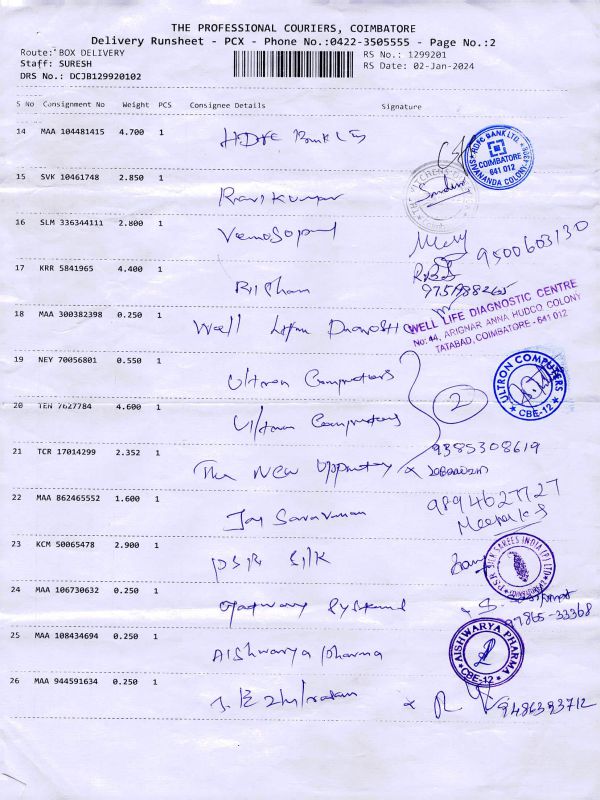 THE PROFESSIONAL COURIERS, COIMBATORE
Delivery Runsheet - PCX - Phone No.:0422-3505555 - Page No.:2
Route: BOX DELIVERY
RS No.: 1299201
Staff: SURESH
RS Date: 02-Jan-2024
DRS No.: DCJB129920102
S No Consignment No Weight PCS Consignee Details Signature
14 MAA 104481415 4.700 1
HDFC Bank Ltd
HDFC BANK LTD. COIMBATORE 641 012 SIVANANDA COLONY
15 SVK 10461748 2.850 1
Ravikumar
16 SLM 336344111 2.800 1
Venugopal
9500603130
17 KRR 5841965 4.400 1
18 MAA 300382398 0.250 1
Well
WELL LIFE DIAGNOSTIC CENTRE
No: 44, ARIGNAR ANNA HUDCO COLONY
TATABAD, COIMBATORE - 641 012
19 NEY 70056801 0.550 1
Ultron Computers
ULTRON COMPUTERS CBE-12
2
20 TEN 7627784 4.600 1
Ultron Computers
21 TCR 17014299 2.352 1
The New
9385308619
22 MAA 862465552 1.600 1
Jay Saravanan
9894627727
23 KCM 50065478 2.900 1
PSR Silk
PSR SILK SAREES INDIA (P) LTD
24 MAA 106730632 0.250 1
Systems
97865-33368
25 MAA 108434694 0.250 1
Aishwarya pharma
AISHWARYA PHARMA CBE-12
26 MAA 944591634 0.250 1
9486393712